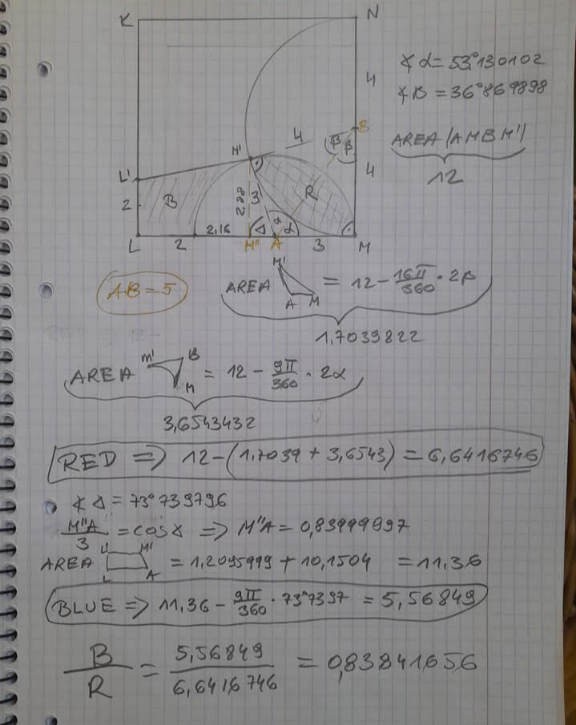 K
N
∢α=53°130102
∢B=36°869898
4
AREA (AMBM')
12
4
B
β
β
M'
L'
4
2
B
2,88
3
R
α
α
Δ
L
2
2,16
M''
A
3
M
AB=5
M'
AREA A M = 12 - 16π/360 · 2β
1,7039822
AREA M' B M = 12 - 9π/360 · 2α
3,6543432
RED ⇒ 12-(1,7039 + 3,6543) = 6,6416746
∢Δ=73°739796
M''A/3 = cosɣ ⇒ M''A = 0,83999997
AREA L' M' L A = 1,2095999 + 10,1504 = 11,36
BLUE ⇒ 11,36 - 9π/360 · 73°7397 = 5,56849
B/R = 5,56849/6,6416746 = 0,83841656